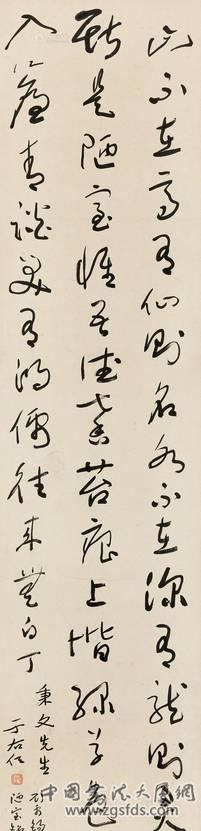 山不在高有仙則名水不在深有龍則靈
斯是陋室惟吾德馨苔痕上階綠草色
入簾青談笑有鴻儒往來無白丁
秉文先生
劉禹錫
陋室銘
于右任
www.zgsfds.com